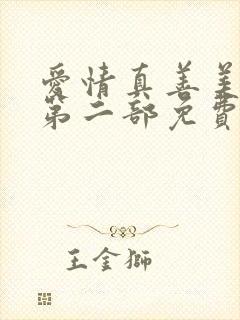 愛情真善美
第二部免費
王金獅